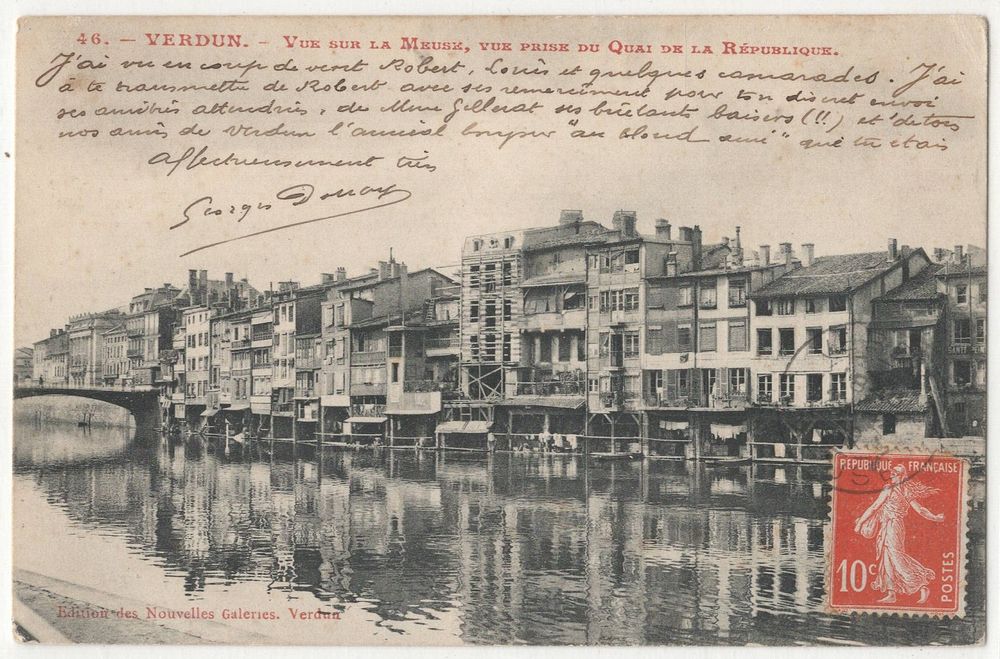 46. — VERDUN. — VUE SUR LA MEUSE, VUE PRISE DU QUAI DE LA RÉPUBLIQUE.
J'ai vu en coup de vent Robert, Louis et quelques camarades. J'ai
à te transmettre de Robert avec ses remerciements pour ton discret envoi
ses amitiés attendries, de Mme Gillerat ses brûlants baisers (!!) et de tous
nos amis de Verdun l'amical bonjour "au blond ami" que tu etais
Affectueusement tien
Georges
SANTÉ PE
RÉPUBLIQUE FRANÇAISE
10c
POSTES
Edition des Nouvelles Galeries. Verdun